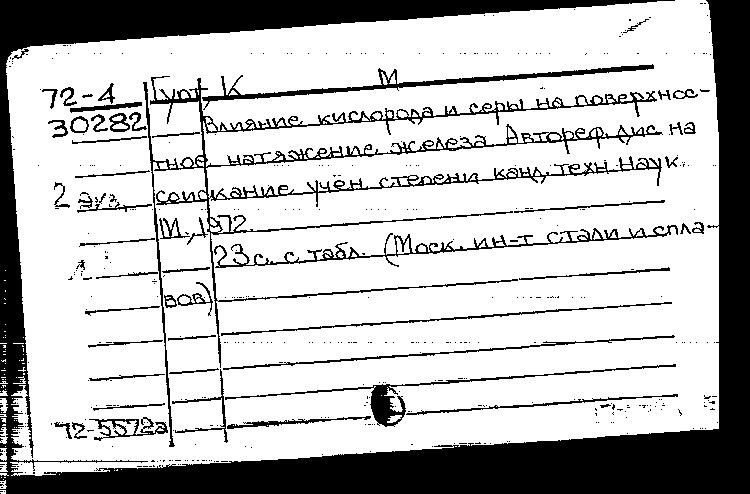 М
72-4 Гурт, К
30282 Влияние кислорода и серы на поверхнос-
тное натяжение железа. Автореф. дис на
2 экз. соискание учён. степени канд. техн. наук.
М., 1972.
23 с. с табл. (Моск. ин-т стали и спла-
вов)
72-5572а